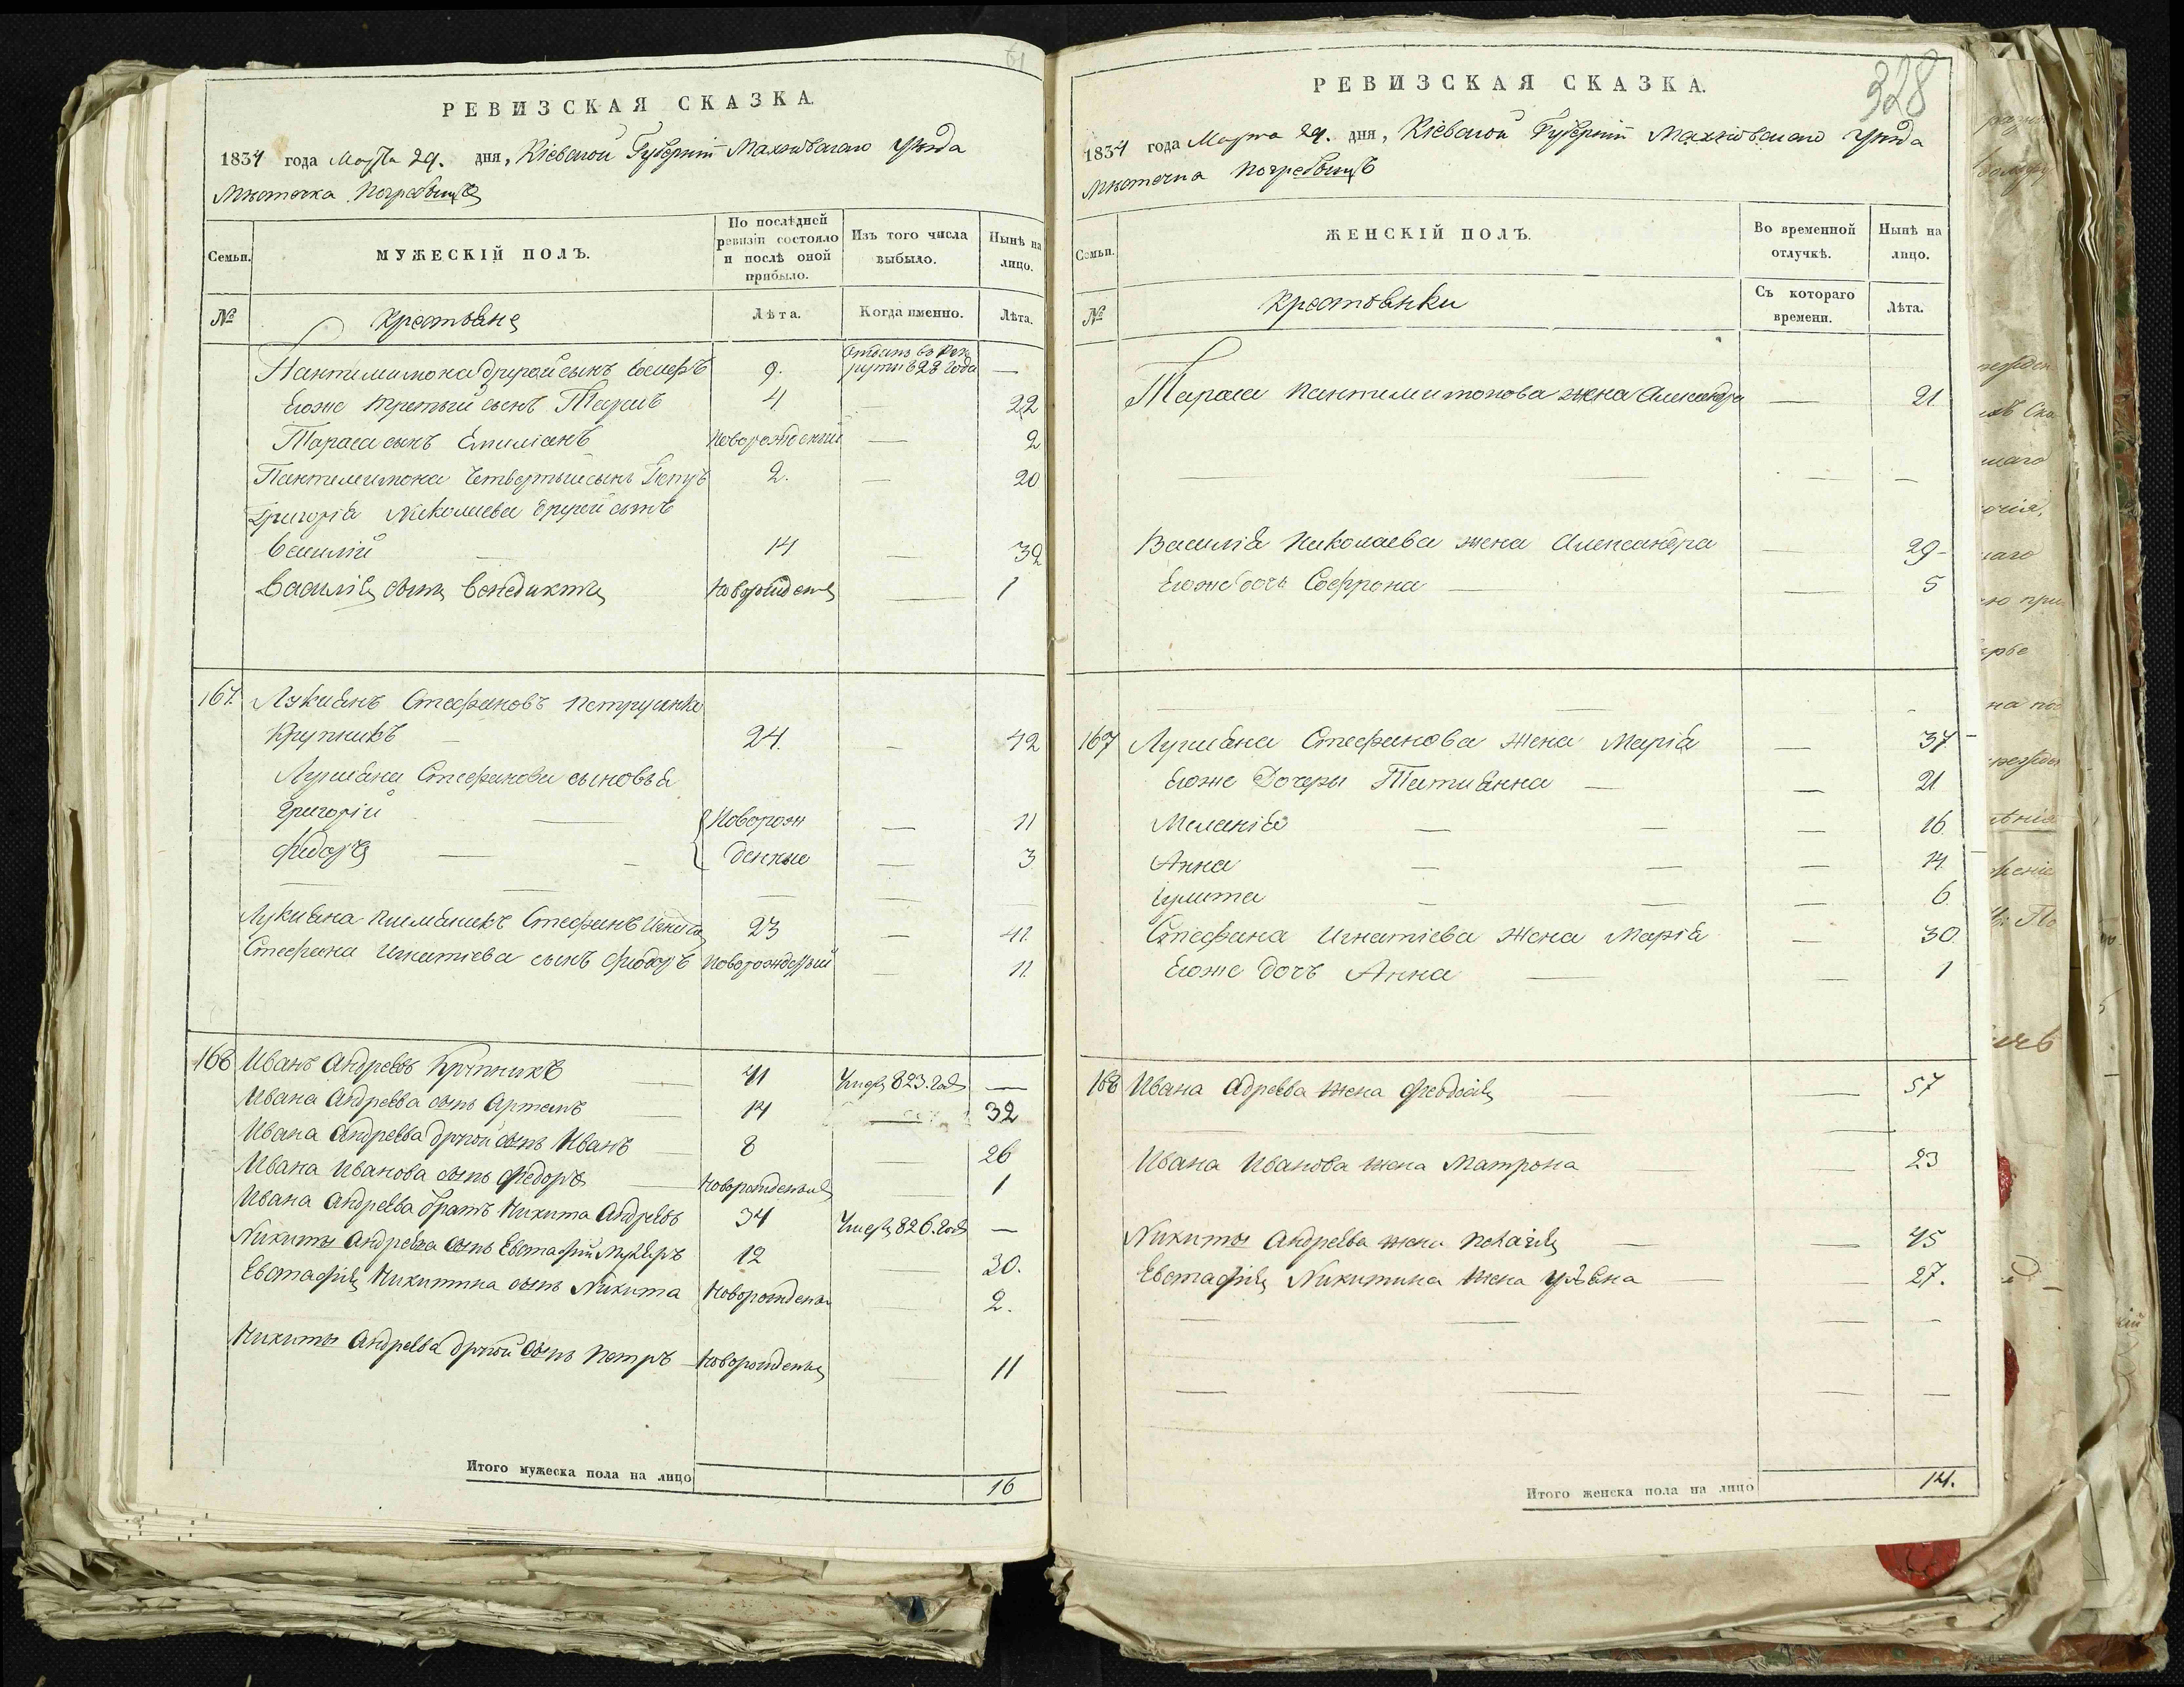 61
РЕВИЗСКАЯ СКАЗКА.
1834 года Марта 29. дня, Кіевской Губерніи Махновскаго Уѣзда
Мѣстечка Погребищъ
Семьи.
МУЖЕСКІЙ ПОЛЪ.
По послѣдней ревизіи состояло и послѣ оной прибыло.
Изъ того числа выбыло.
Нынѣ на лицо.
№
Крестьяне
Лѣта.
Когда именно.
Лѣта.
Пантилимона другой сынъ 9. Отданъ въ рекруты 828 года —
Егоже третый сынъ Тарасъ 4 22
Тараса сынъ Емиліанъ Новорожденый — 2
Пантилимона четвертый сынъ Петръ 2. — 20
Григорія Николаева другой сынъ
Василій 14 — 32
Василія сынъ Венедиктъ Новорожденъ — 1
167. Лукиянъ Стефановъ Петрусенко
Крупникъ 24. — 42
Лукиана Стефанова сыновья
Григорій — Новорож — 11
Федоръ — денные — 3
Лукияна племяникъ Стефанъ 23 — 41
Стефана Игнатіева сынъ Феодоръ Новорожденый — 11
168 Иванъ Андреевъ Крупникъ 41 Умеръ 823. года —
Ивана Андреева сынъ Артемъ 14 — 32
Ивана Андреева другой сынъ Иванъ 8 — 26
Ивана Иванова сынъ Федоръ Новорожденый — 1
Ивана Андреева братъ Никита Андреевъ 34 Умеръ 826. года —
Никиты Андреева сынъ Евстафій 12 — 30.
Евстафія Никитина сынъ Никита Новорожденъ — 2.
Никиты Андреева другой сынъ Петръ Новорожденъ — 11
Итого мужеска пола на лицо 16
328
РЕВИЗСКАЯ СКАЗКА.
1834 года Марта 29. дня, Кіевской Губерніи Махновскаго Уѣзда
Мѣстечка Погребищъ
Семьи.
ЖЕНСКІЙ ПОЛЪ.
Во временной отлучкѣ.
Нынѣ на лицо.
№
Крестьянки
Съ котораго времени.
Лѣта.
Тараса Пантилимонова жена Александра — 21
Василія Николаева жена Александра — 29
Егоже дочь Софрона — 5
167 Лукиана Стефанова жена Марія — 37
Егоже дочеры Татиянна — 21
Меланія — 16
Анна — 14
Іулита — 6
Стефана Игнатіева жена Марія — 30
Егоже дочъ Анна — 1
168 Ивана Адреева жена Феодосія — 57
Ивана Иванова жена Матрона — 23
Никиты Андреева жена — 45
Евстафія Никитина жена Уляна — 27.
Итого женска пола на лицо 14.